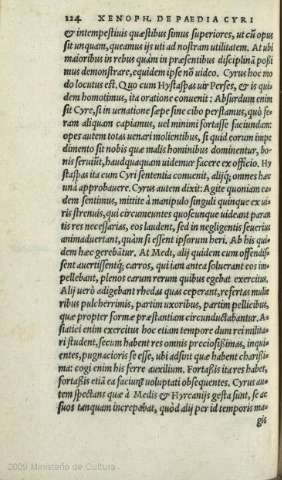 224 XENOPH. DE PAEDIA CYRI
& intempestiuis quæstibus simus superiores, ut cũ opus
sit unquam, queamus ijs uti ad nostram utilitatem. At ubi
maioribus in rebus quàm in præsentibus disciplinā possi
mus demonstrare, equidem ipse nō uideo. Cyrus hoc mo
do locutus est. Quo cum Hystaspas uir Perses, & is qui-
dem homotimus, ita oratione conuenit: Absurdum enim
sit Cyre, si in uenatione sæpe sine cibo perstamus, quò fe-
ram aliquam capiamus, uel minimi fortasse faciundam:
opes autem totas uenari molientibus, si quid eorum impe
dimento sit nobis quæ malis hominibus dominentur, bo-
nis seruiūt, haudquaquam uidemur facere ex officio. Hy
staspas ita cum Cyri sententia conuenit, alijq; omnes hæc
unà approbauere. Cyrus autem dixit: Agite quoniam ea-
dem sentimus, mittite à manipulo singuli quinque ex ui-
ris strenuis, qui circumeuntes quoscunque uideant paran
tis res necessarias, eos laudent, sed in negligentis seuerius
animaduertant, quàm si essent ipsorum heri. Ab his qui-
dem hæc gerebātur. At Medi, alij quidem cum offendis-
sent auertissentq; carros, qui iam antea soluerant eos im-
pellebant, plenos earum rerum quibus egebat exercitus.
Alij uerò adigebant rhedas quas ceperant, refertas mulie
ribus pulcherrimis, partim uxoribus, partim pellicibus,
quæ propter formæ præstantiam circunductabantur. A-
siatici enim exercitus hoc etiam tempore dum rei milita-
ri student, secum habent res omnis preciosissimas, inqui-
entes, pugnacioris se esse, ubi adsint quæ habent charissi-
ma: cogi enim his ferre auxilium. Fortassis ita res habet,
fortassis etiā ea faciunt uoluptati obsequentes. Cyrus au-
tem spectans quæ à Medis & Hyrcanijs gesta sunt, se ac
suos tanquam increpabat, quòd alij per id temporis ma-
gis
2009 Ministerio de Cultura